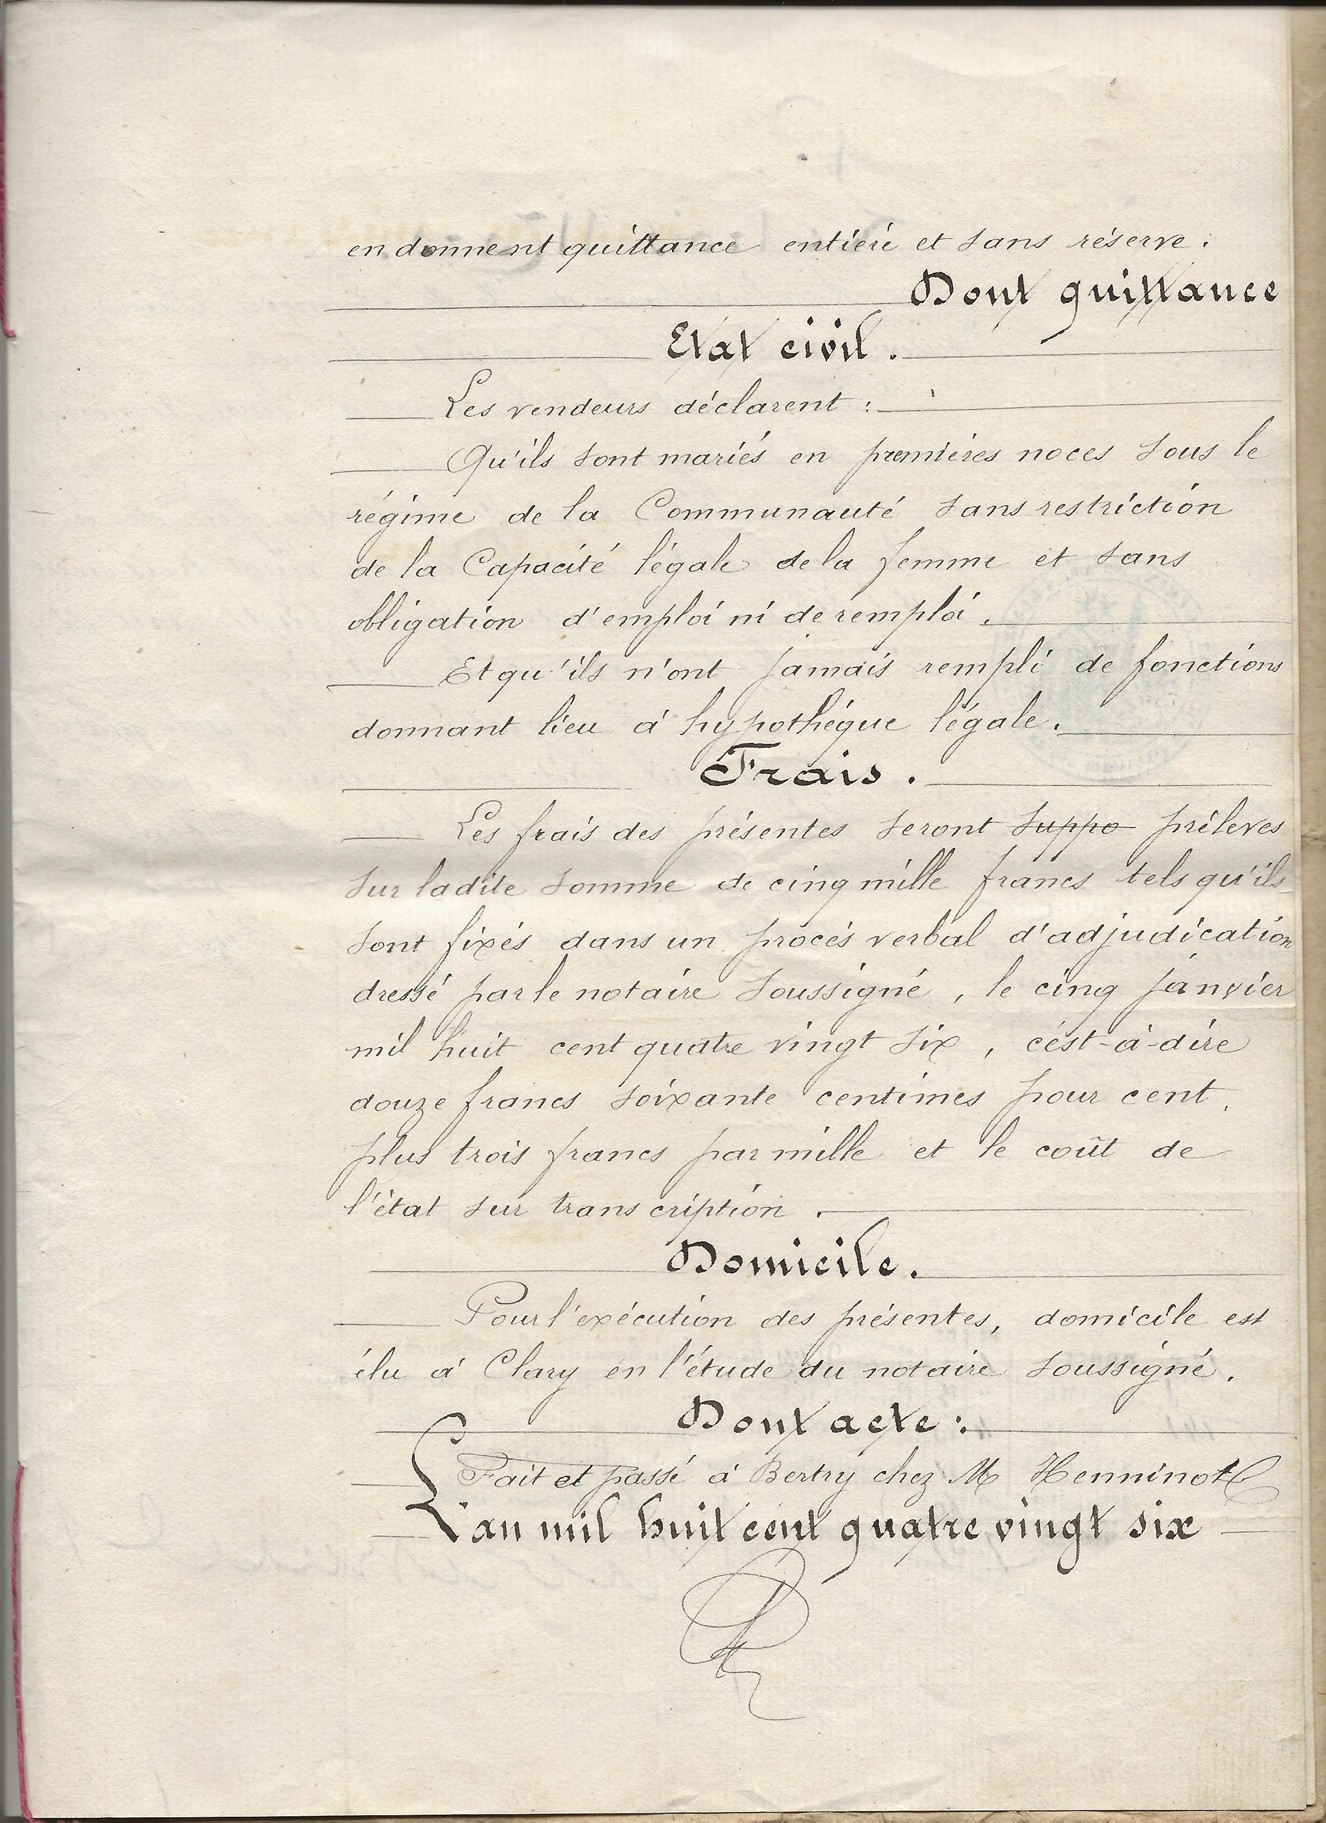 en donnent quittance entière et sans réserve.
Dont quittance
Etat civil.
Les vendeurs déclarent :
Qu'ils sont mariés en premières noces sous le
régime de la Communauté sans restriction
de la Capacité légale de la femme et sans
obligation d'emploi ni de remploi.
Et qu'ils n'ont jamais rempli de fonctions
donnant lieu à hypothèque légale.
Frais.
Les frais des présentes seront suppo prélevés
sur ladite somme de cinq mille francs tels qu'ils
sont fixés dans un procès verbal d'adjudication
dressé par le notaire soussigné, le cinq janvier
mil huit cent quatre vingt six, c'est-à-dire
douze francs soixante centimes pour cent,
plus trois francs par mille et le coût de
l'état sur transcription.
Domicile.
Pour l'exécution des présentes, domicile est
élu à Clary en l'étude du notaire soussigné.
Dont acte :
Fait et passé à Bertry chez M Henninot
L'an mil huit cent quatre vingt six